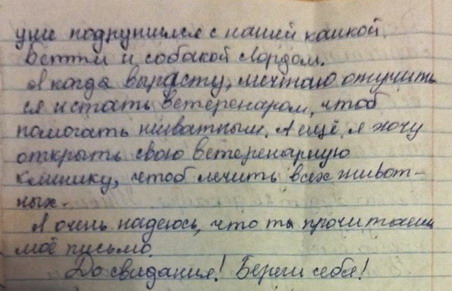 уже подружился с нашей кошкой
Бетти и собакой Лордом.
Я когда вырасту, мечтаю отучить
ся и стать ветеренаром, чтоб
помогать животным. А ещё, я хочу
открыть свою ветеренарную
клинику, чтоб лечить всех живот-
ных.
Я очень надеюсь, что ты прочитаешь
моё письмо.
До свидания! Береги себя!